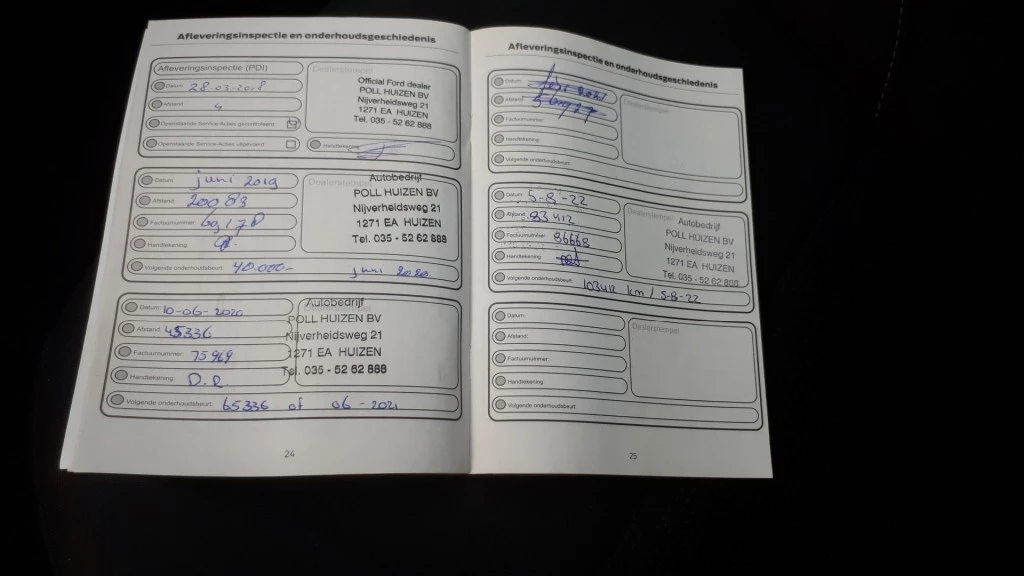 Afleveringsinspectie en onderhoudsgeschiedenis
Afleveringsinspectie (PDI)
Datum: 28-03-2018
Afstand: 4
Openstaande Service-Acties gecontroleerd
Openstaande Service-Acties uitgevoerd
Dealerstempel
Official Ford dealer
POLL HUIZEN BV
Nijverheidsweg 21
1271 EA HUIZEN
Tel. 035 - 52 62 888
Handtekening
Datum: juni 2019
Afstand: 20083
Factuurnummer: 69178
Handtekening:
Volgende onderhoudsbeurt: 40.000- juni 2020
Dealerstempel
Autobedrijf
POLL HUIZEN BV
Nijverheidsweg 21
1271 EA HUIZEN
Tel. 035 - 52 62 888
Datum: 10-06-2020
Afstand: 45336
Factuurnummer: 75969
Handtekening: D.R.
Volgende onderhoudsbeurt: 65336 of 06-2021
Autobedrijf
POLL HUIZEN BV
Nijverheidsweg 21
1271 EA HUIZEN
Tel. 035 - 52 62 888
24
Afleveringsinspectie en onderhoudsgeschiedenis
Datum:
Afstand:
Factuurnummer:
Handtekening:
Volgende onderhoudsbeurt:
Dealerstempel
Datum: 5-8-22
Afstand: 83412
Factuurnummer: 86668
Handtekening:
Volgende onderhoudsbeurt: 103412 km / 5-8-22
Dealerstempel
Autobedrijf
POLL HUIZEN BV
Nijverheidsweg 21
1271 EA HUIZEN
Tel. 035 - 52 62 888
Datum:
Afstand:
Factuurnummer:
Handtekening:
Volgende onderhoudsbeurt:
Dealerstempel
25